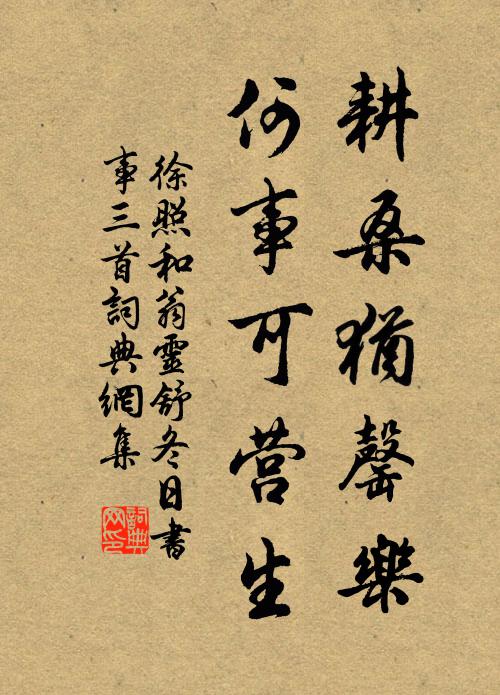 耕桑猶罄樂
何事可营生
徐照和翁靈舒冬日書
事三首詞典網集
詞典
网印